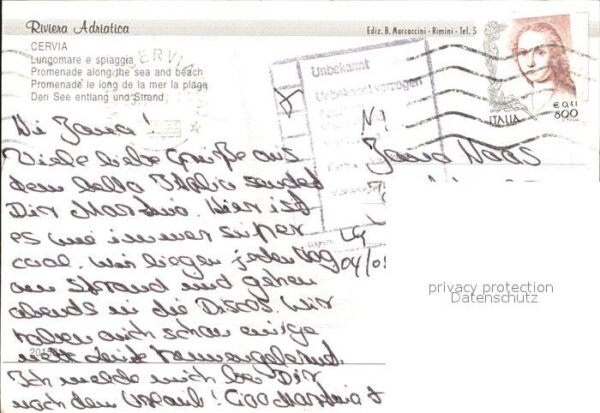 Riviera Adriatica
Ediz. B. Marcaccini - Rimini - Tel. 5
CERVIA
Lungomare e spiaggia
Promenade along the sea and beach
Promenade le long de la mer la plage
Den See entlang und Strand
CERVIA
Unbekannt
Unbekannt verzogen
€ 0,41
800
ITALIA
Hi Jana!
Viele liebe Grüße aus
dem Italia sendet
Dir Martina. Hier ist
es wie immer super
cool. Wir liegen jeden Tag
am Strand und gehen
abends in die Discos. Wir
haben auch schon einige
nette Leute kennengelernt.
Ich melde mich bei Dir
nach dem Urlaub! Ciao
Jana
04/0
privacy protection
Datenschutz